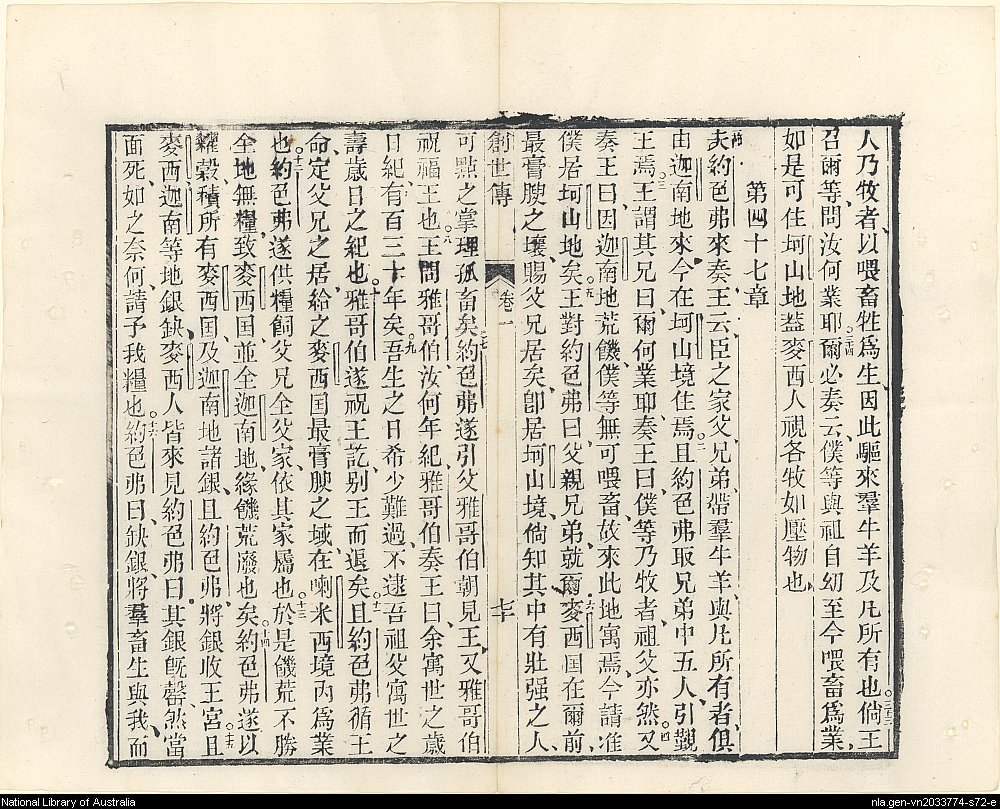 人乃牧者、以喂畜牲爲生、因此驅來羣牛羊及凡所有也。三三倘王
召爾等、問汝何業耶。三四爾必奏云、僕等與祖自幼至今喂畜爲業、
如是可住坷山地、葢麥西人視各牧如壓物也、
第四十七章
夫約色弗來奏王云、臣之家父、兄弟、帶羣牛羊、與凡所有者、俱
由迦南地來、今在坷山境住焉。二且約色弗取兄弟中五人、引觐
王焉。三王謂其兄曰、爾何業耶、奏王曰、僕等乃牧者、祖父亦然。四又
奏王曰、因迦南地荒饑、僕等無可喂畜、故來此地寓焉、今請准
僕居坷山地矣。五王對約色弗曰、父親兄弟、就爾。六麥西国在爾前、
最膏腴之壤、賜父兄居矣、卽居坷山境、倘知其中有壯强之人、
創世傳 卷一 七十
可㸃之掌理孤畜矣。七約色弗遂引父雅哥伯朝見王、又雅哥伯
祝福王也。八王問雅哥伯、汝何年紀。九雅哥伯奏王曰、余寓世之歲
日紀、有百三十年矣、吾生之日希少難過、不逮吾祖父寓世之
壽歲日之紀也。十雅哥伯遂祝王訖、别王而退矣。十一且約色弗循王
命、定父兄之居、給之麥西国最膏腴之域、在喇米西境内爲業
也。十二約色弗遂供糧飼父兄、全父家、依其家屬也。十三於是饑荒不勝
全地無糧、致麥西国、並全迦南地、緣饑荒廢也矣。十四約色弗遂以
糴穀積所有麥西国、及迦南地諸銀、且約色弗將銀收王宮。十五且
麥西迦南等地銀缺、麥西人皆來見約色弗曰、其銀旣罄、然當
面死、如之奈何、請予我糧也。十六約色弗曰、缺銀、將羣畜生與我、而
National Library of Australia
nla.gen-vn2033774-s72-e